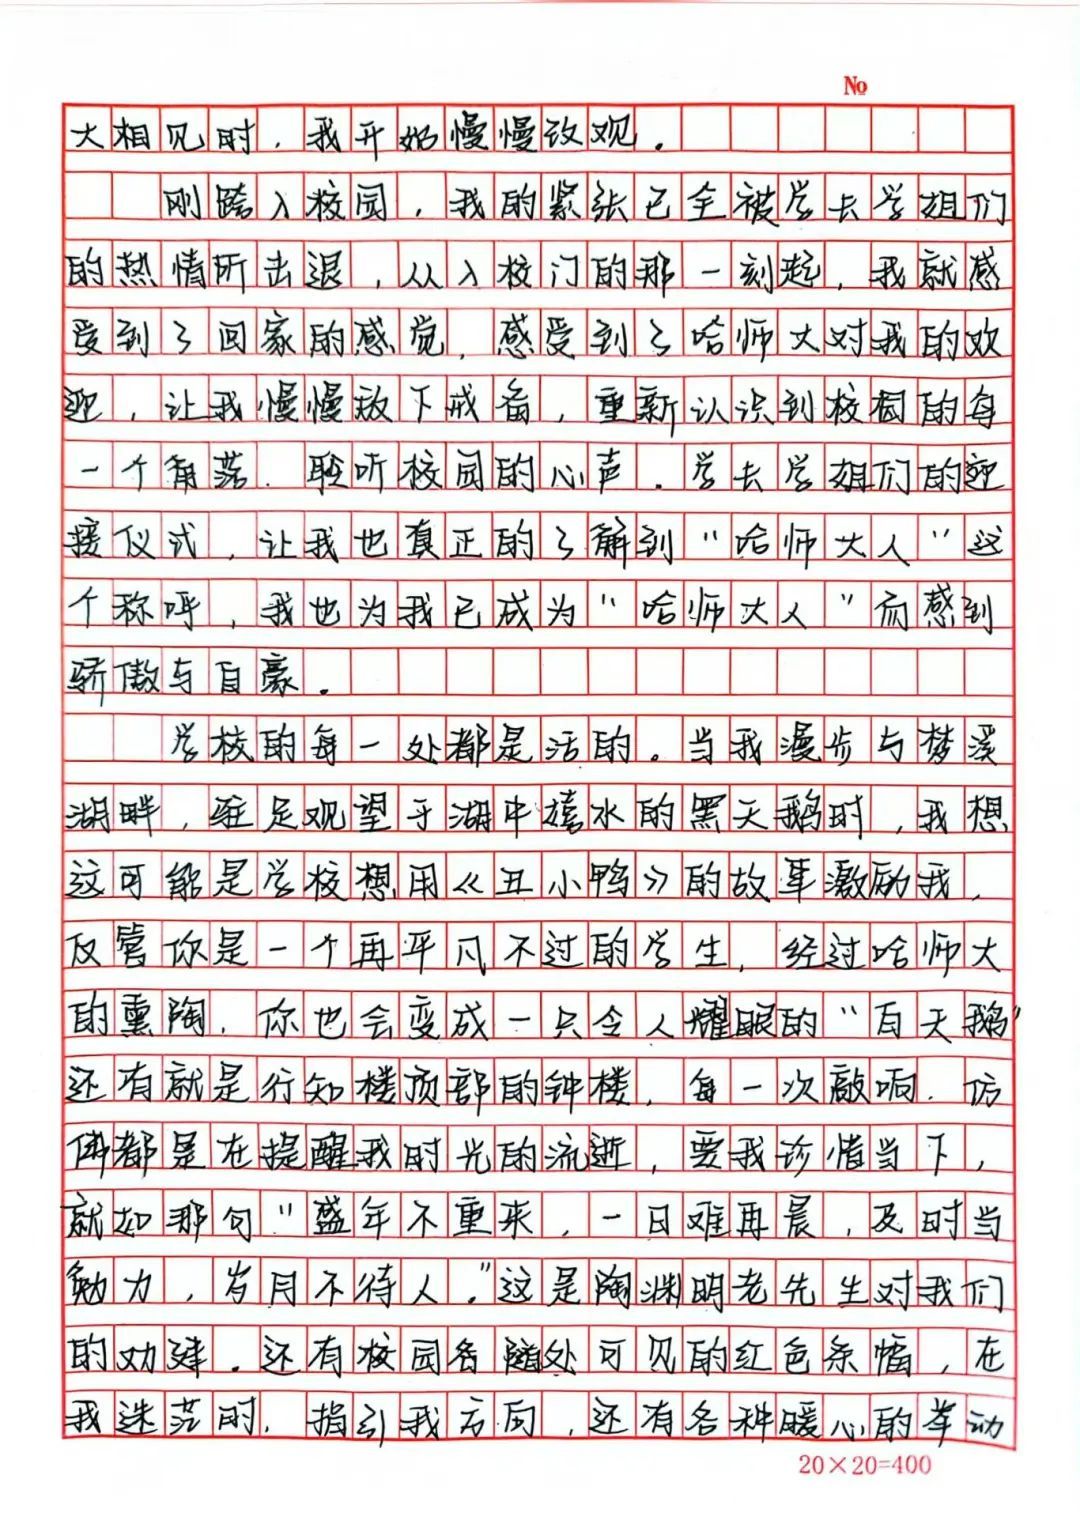 No
大相见时，我开始慢慢改观。
刚跨入校园，我的紧张已全被学长学姐们
的热情所击退，从入校门的那一刻起，我就感
受到了回家的感觉，感受到了哈师大对我的欢
迎，让我慢慢放下戒备，重新认识到校园的每
一个角落，聆听校园的心声。学长学姐们的迎
接仪式，让我也真正的了解到“哈师大人”这
个称呼，我也为我已成为“哈师大人”而感到
骄傲与自豪。
学校的每一处都是活的。当我漫步与梦溪
湖畔，驻足观望于湖中嬉水的黑天鹅时，我想
这可能是学校想用《丑小鸭》的故事激励我，
及管你是一个再平凡不过的学生，经过哈师大
的熏陶，你也会变成一只令人耀眼的“白天鹅”
还有就是行知楼顶部的钟楼，每一次敲响，仿
佛都是在提醒我时光的流逝，要我珍惜当下，
就如那句“盛年不重来，一日难再晨，及时当
勉力，岁月不待人。”这是陶渊明老先生对我们
的劝建。还有校园各随处可见的红色条幅，在
我迷茫时，指引我方向，还有各种暖心的举动
20×20=400